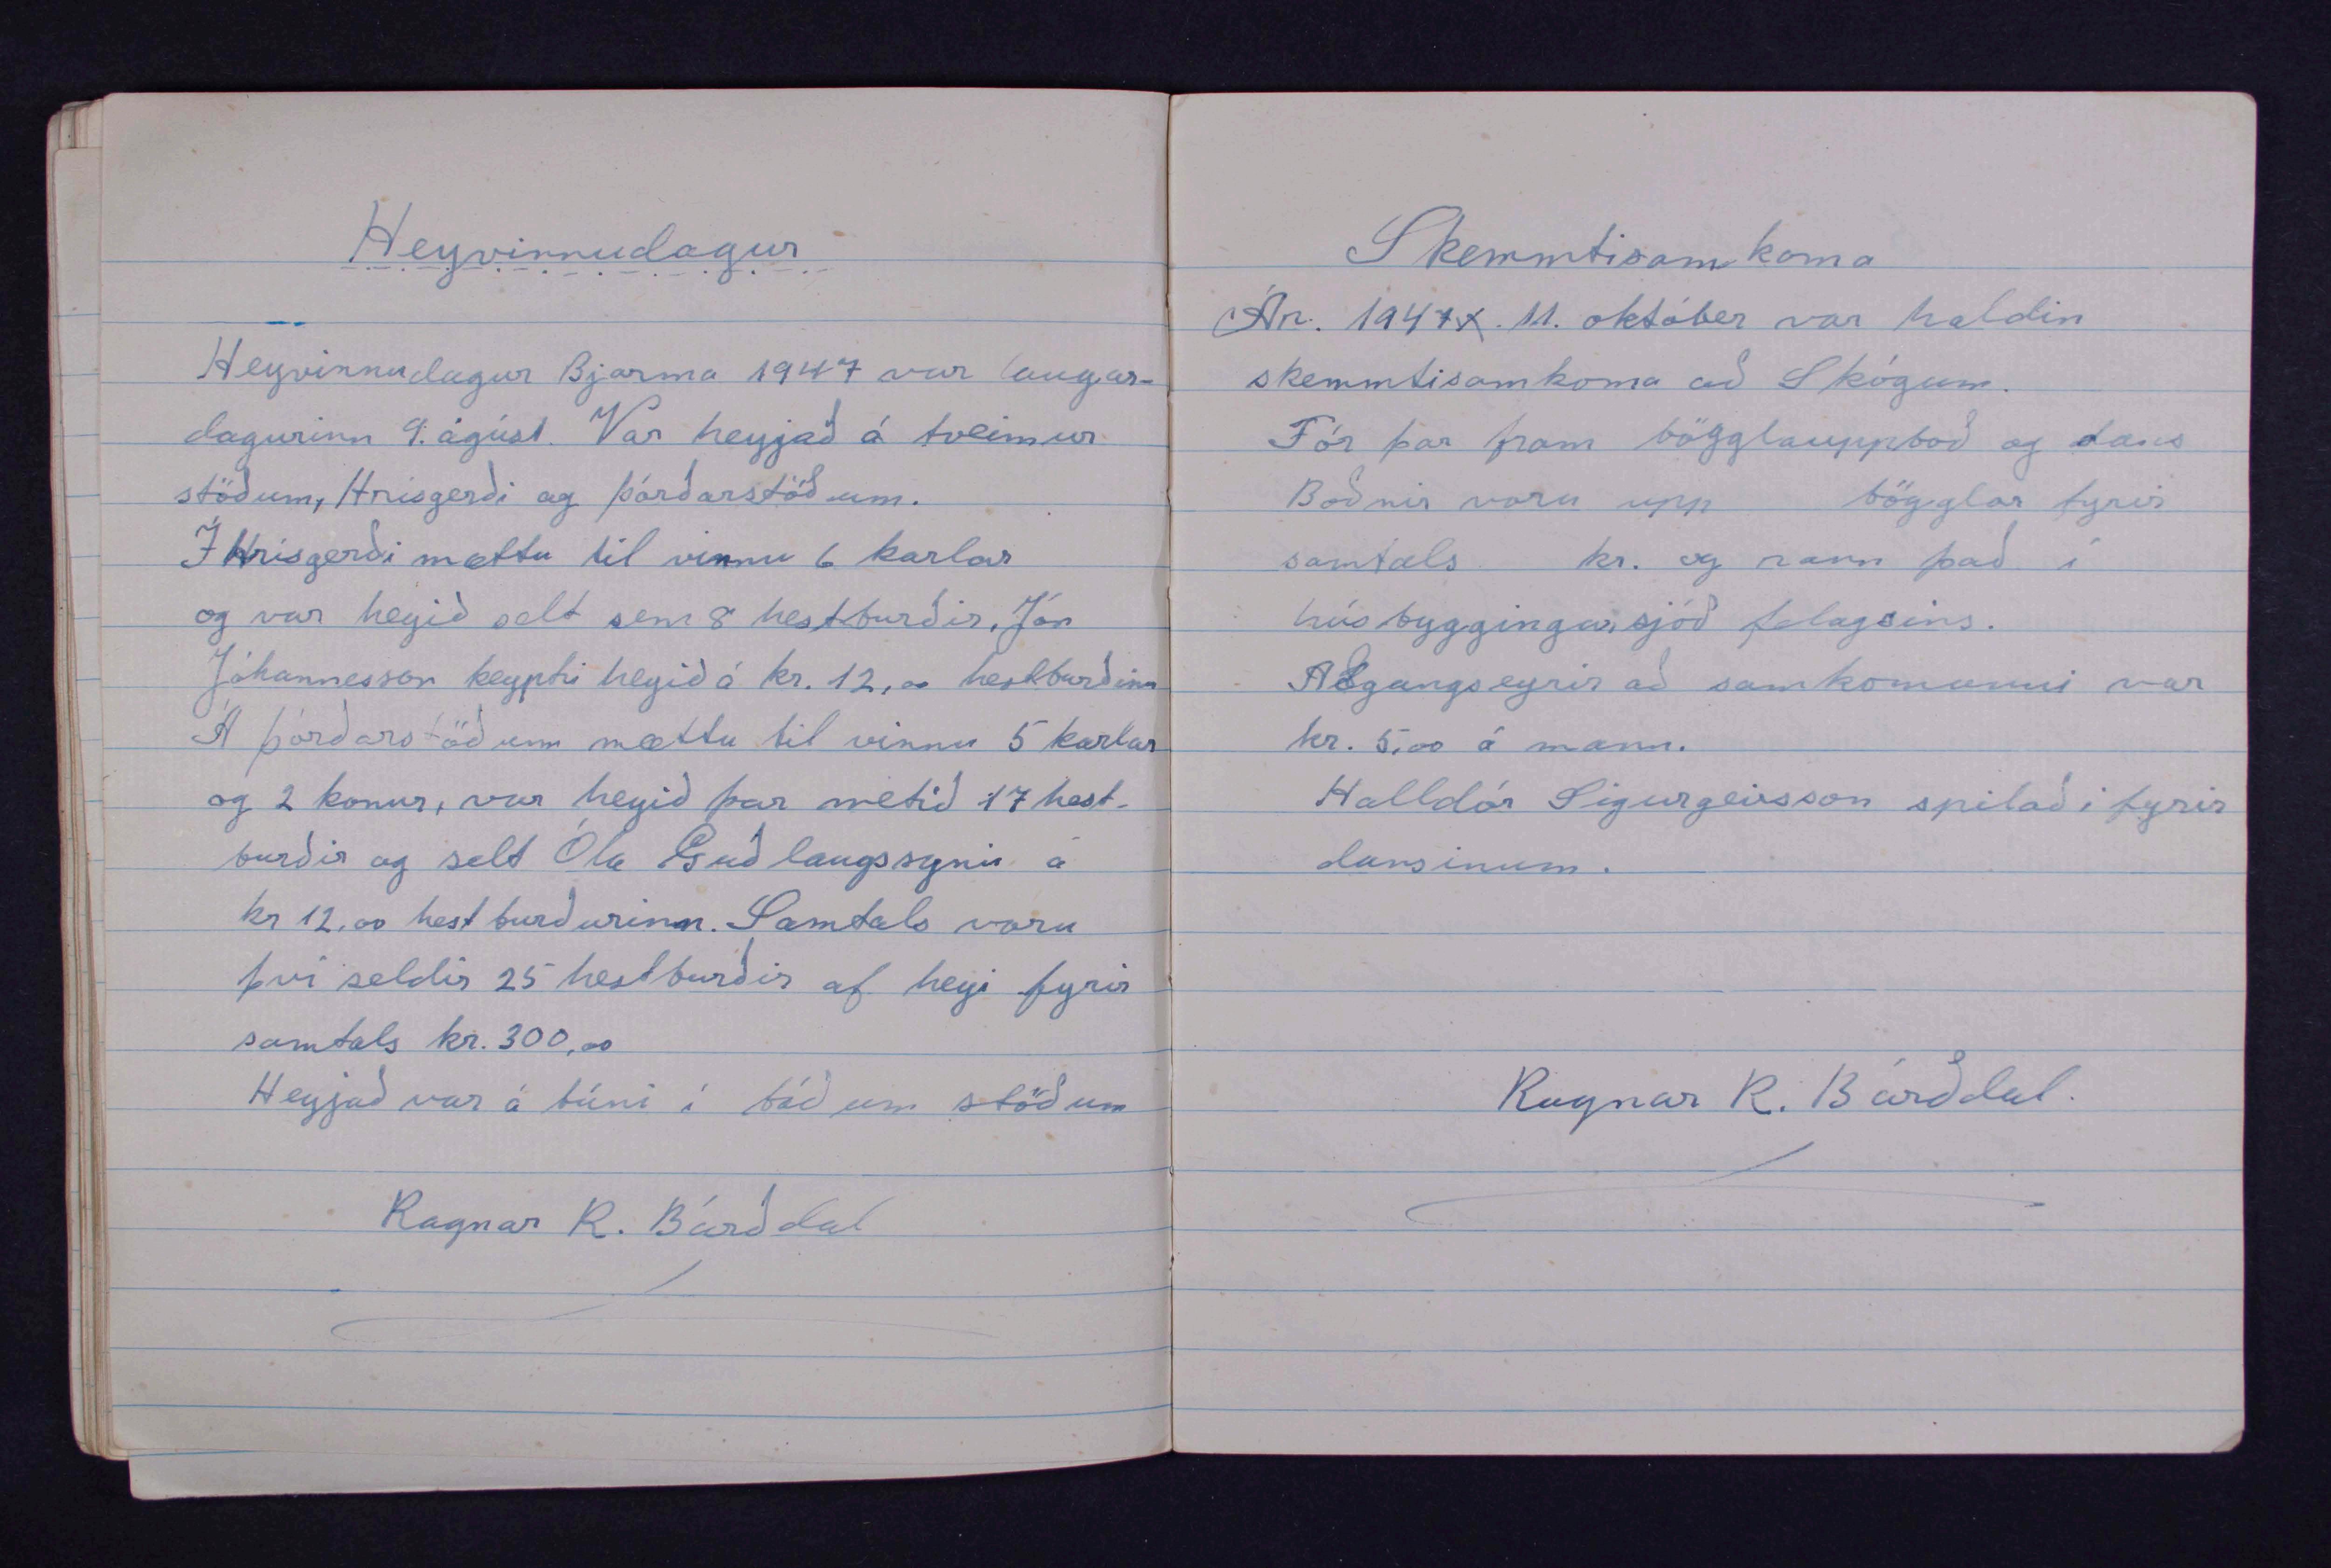 Heyvinnudagur
Heyvinnudagur Bjarma 1947 var laugar-
dagurinn 9. ágúst. Var heyjað á tveimur
stöðum, Hrísgerði og Þórðarstöðum.
Í Hrísgerði mættu til vinnu 6 karlar
og var heyið selt sem 8 hestburðir. Jón
Jóhannesson keypti heyið á kr. 12,00 hestburðinn
Á Þórðarstöðum mættu til vinnu 5 karlar
og 2 konur, var heyið þar metið 17 hest-
burðir og selt Óla Guðlaugssyni á
kr 12,00 hestburðurinn. Samtals voru
því seldir 25 hestburðir af heyi fyrir
samtals kr. 300,00
Heyjað var á túni í báðum stöðum
Ragnar R. Bárðdal
Skemmtisamkoma
Ár. 1947. 11. október var haldin
skemmtisamkoma að Skógum.
Fór þar fram bögglauppboð og dans
Boðnir voru upp bögglar fyrir
samtals kr. og rann það í
húsbyggingarsjóð felagsins.
Aðgangseyrir að samkomunni var
kr. 5,00 á mann.
Halldór Sigurgeirsson spilaði fyrir
dansinum.
Ragnar R. Bárðdal.